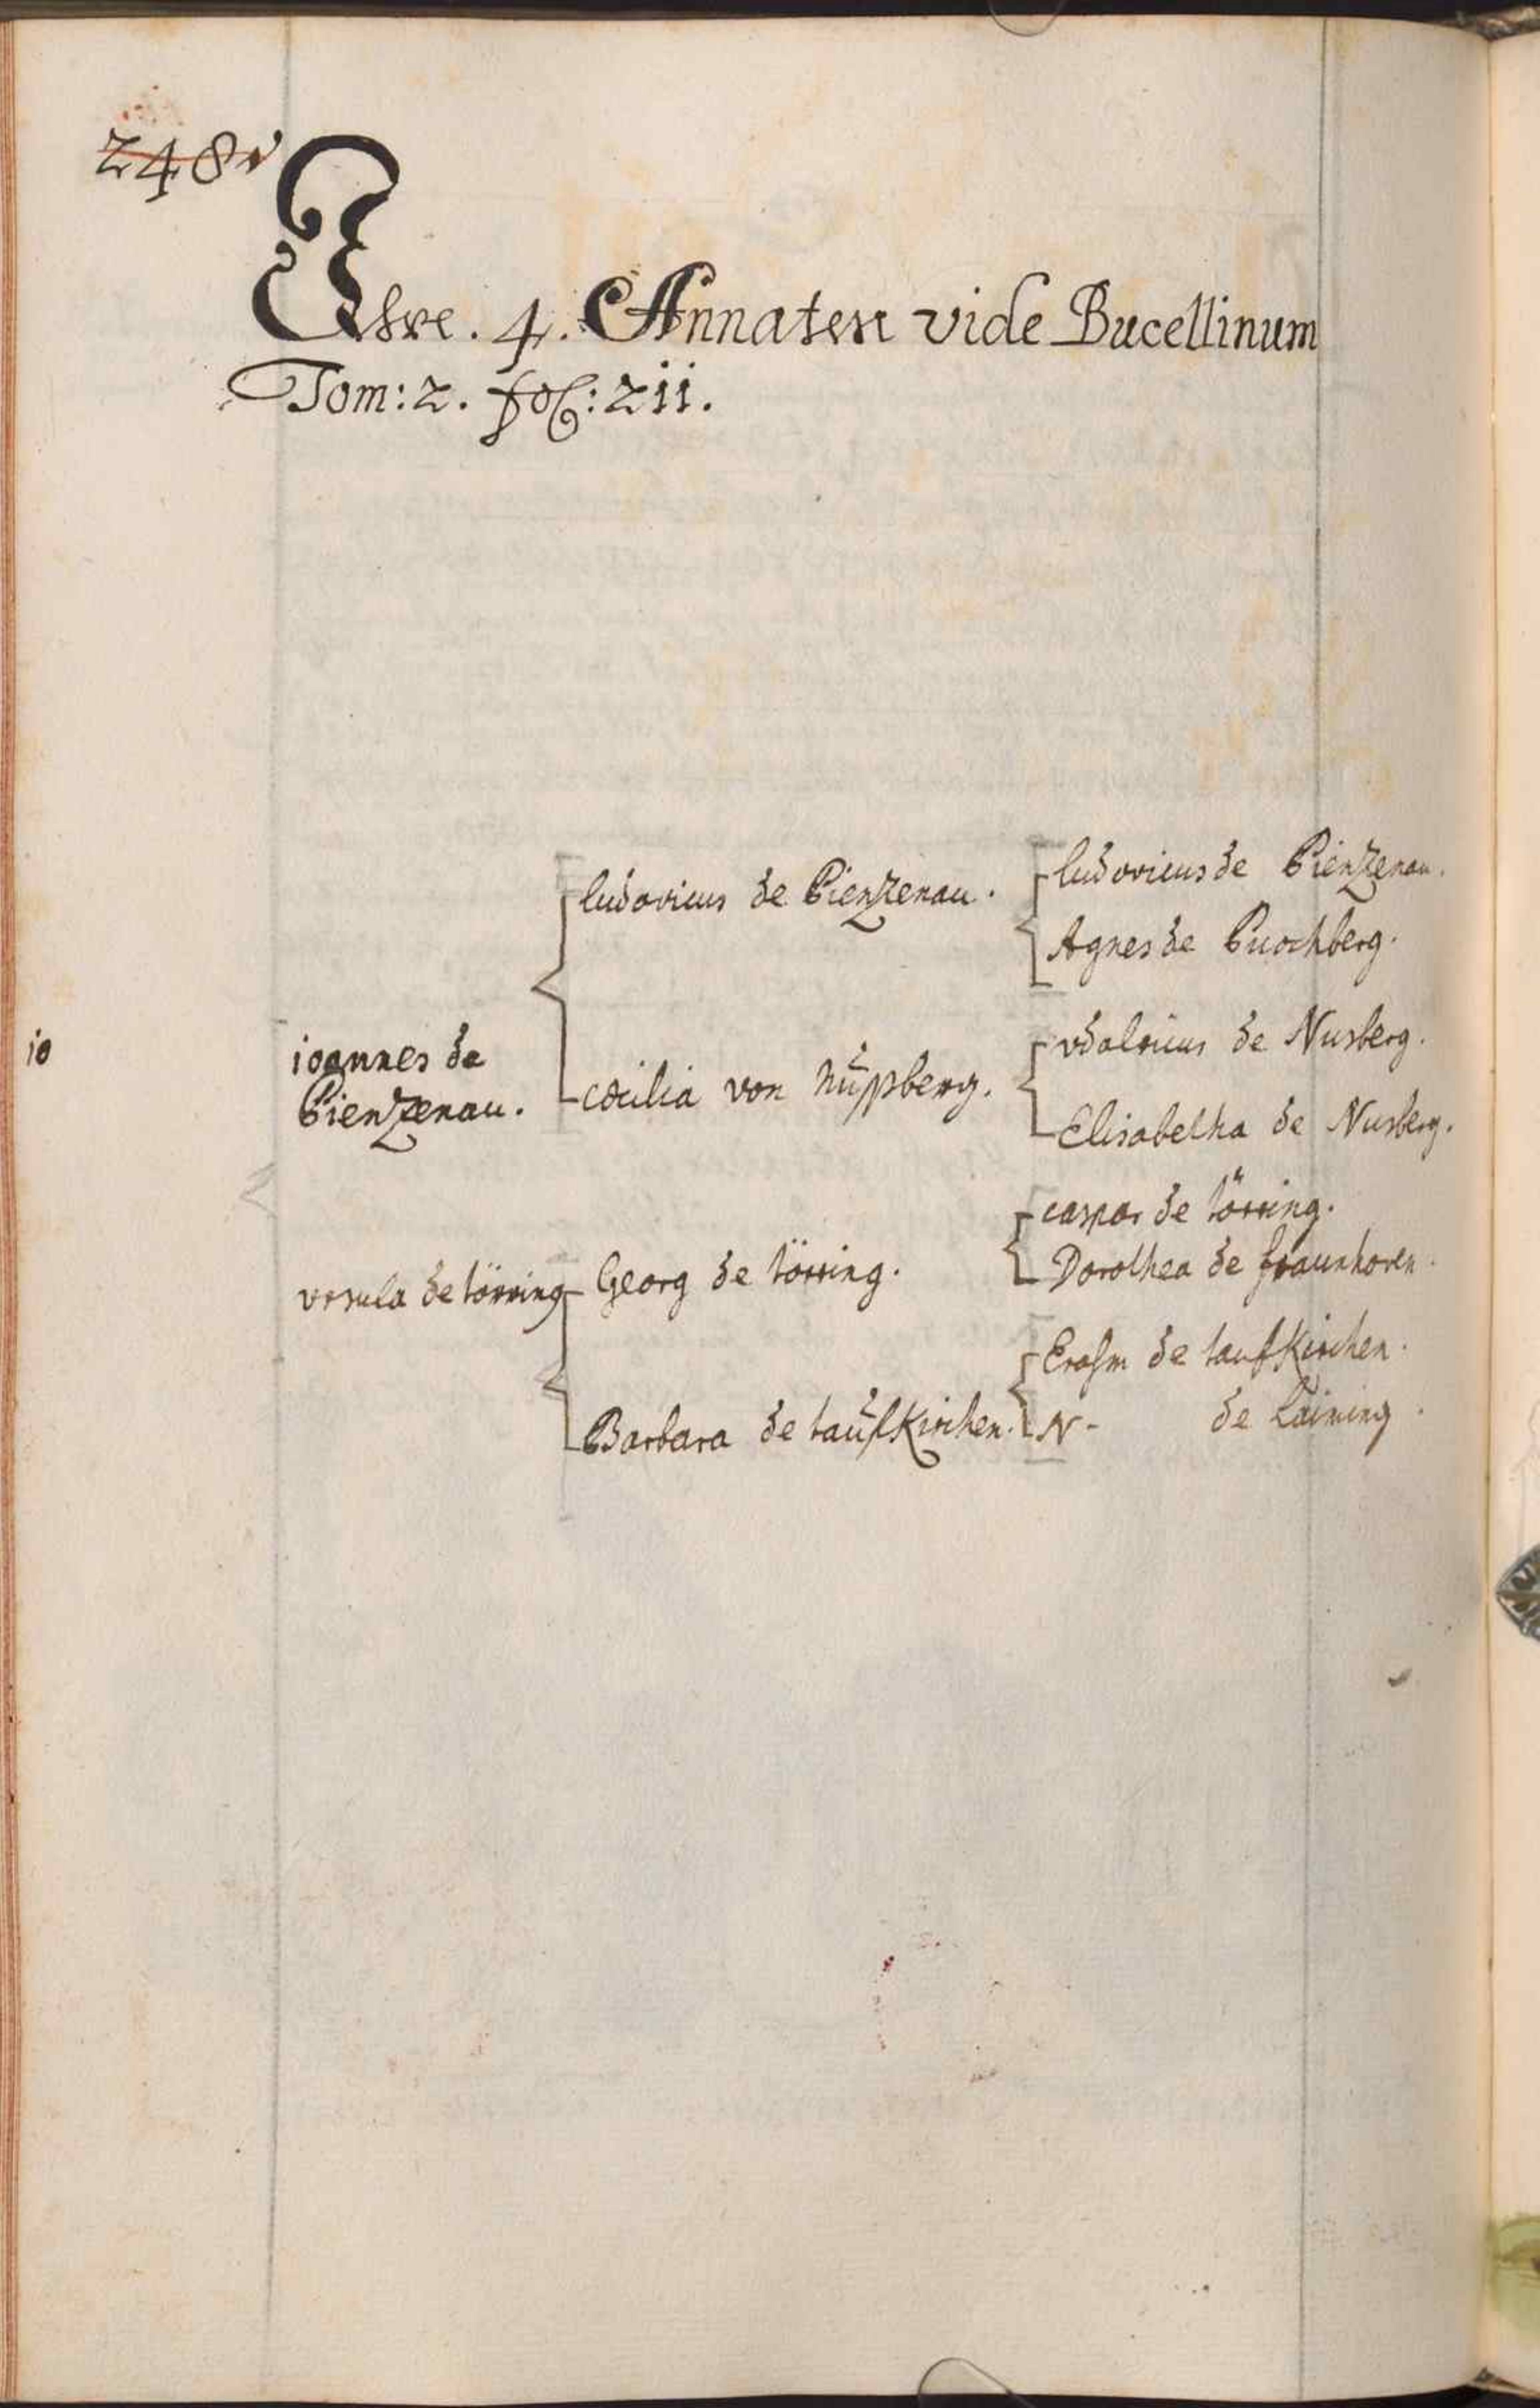 248v
Ihre. 4. Annaten vide Bucellinum
Tom: 2. fol: 211.
ludovicus de Pienzenau.
ludovicus de Pienzenau.
Agnes de Puochberg.
io
ioannes de
Pienzenau.
cæcilia von Nußberg.
vdalricus de Nusberg.
Elisabetha de Nusberg.
vrsula de törring
Georg de törring.
caspar de törring.
Dorothea de fraunhoven.
Barbara de taufKirchen.
Erasm de taufKirchen.
N- de Laiming